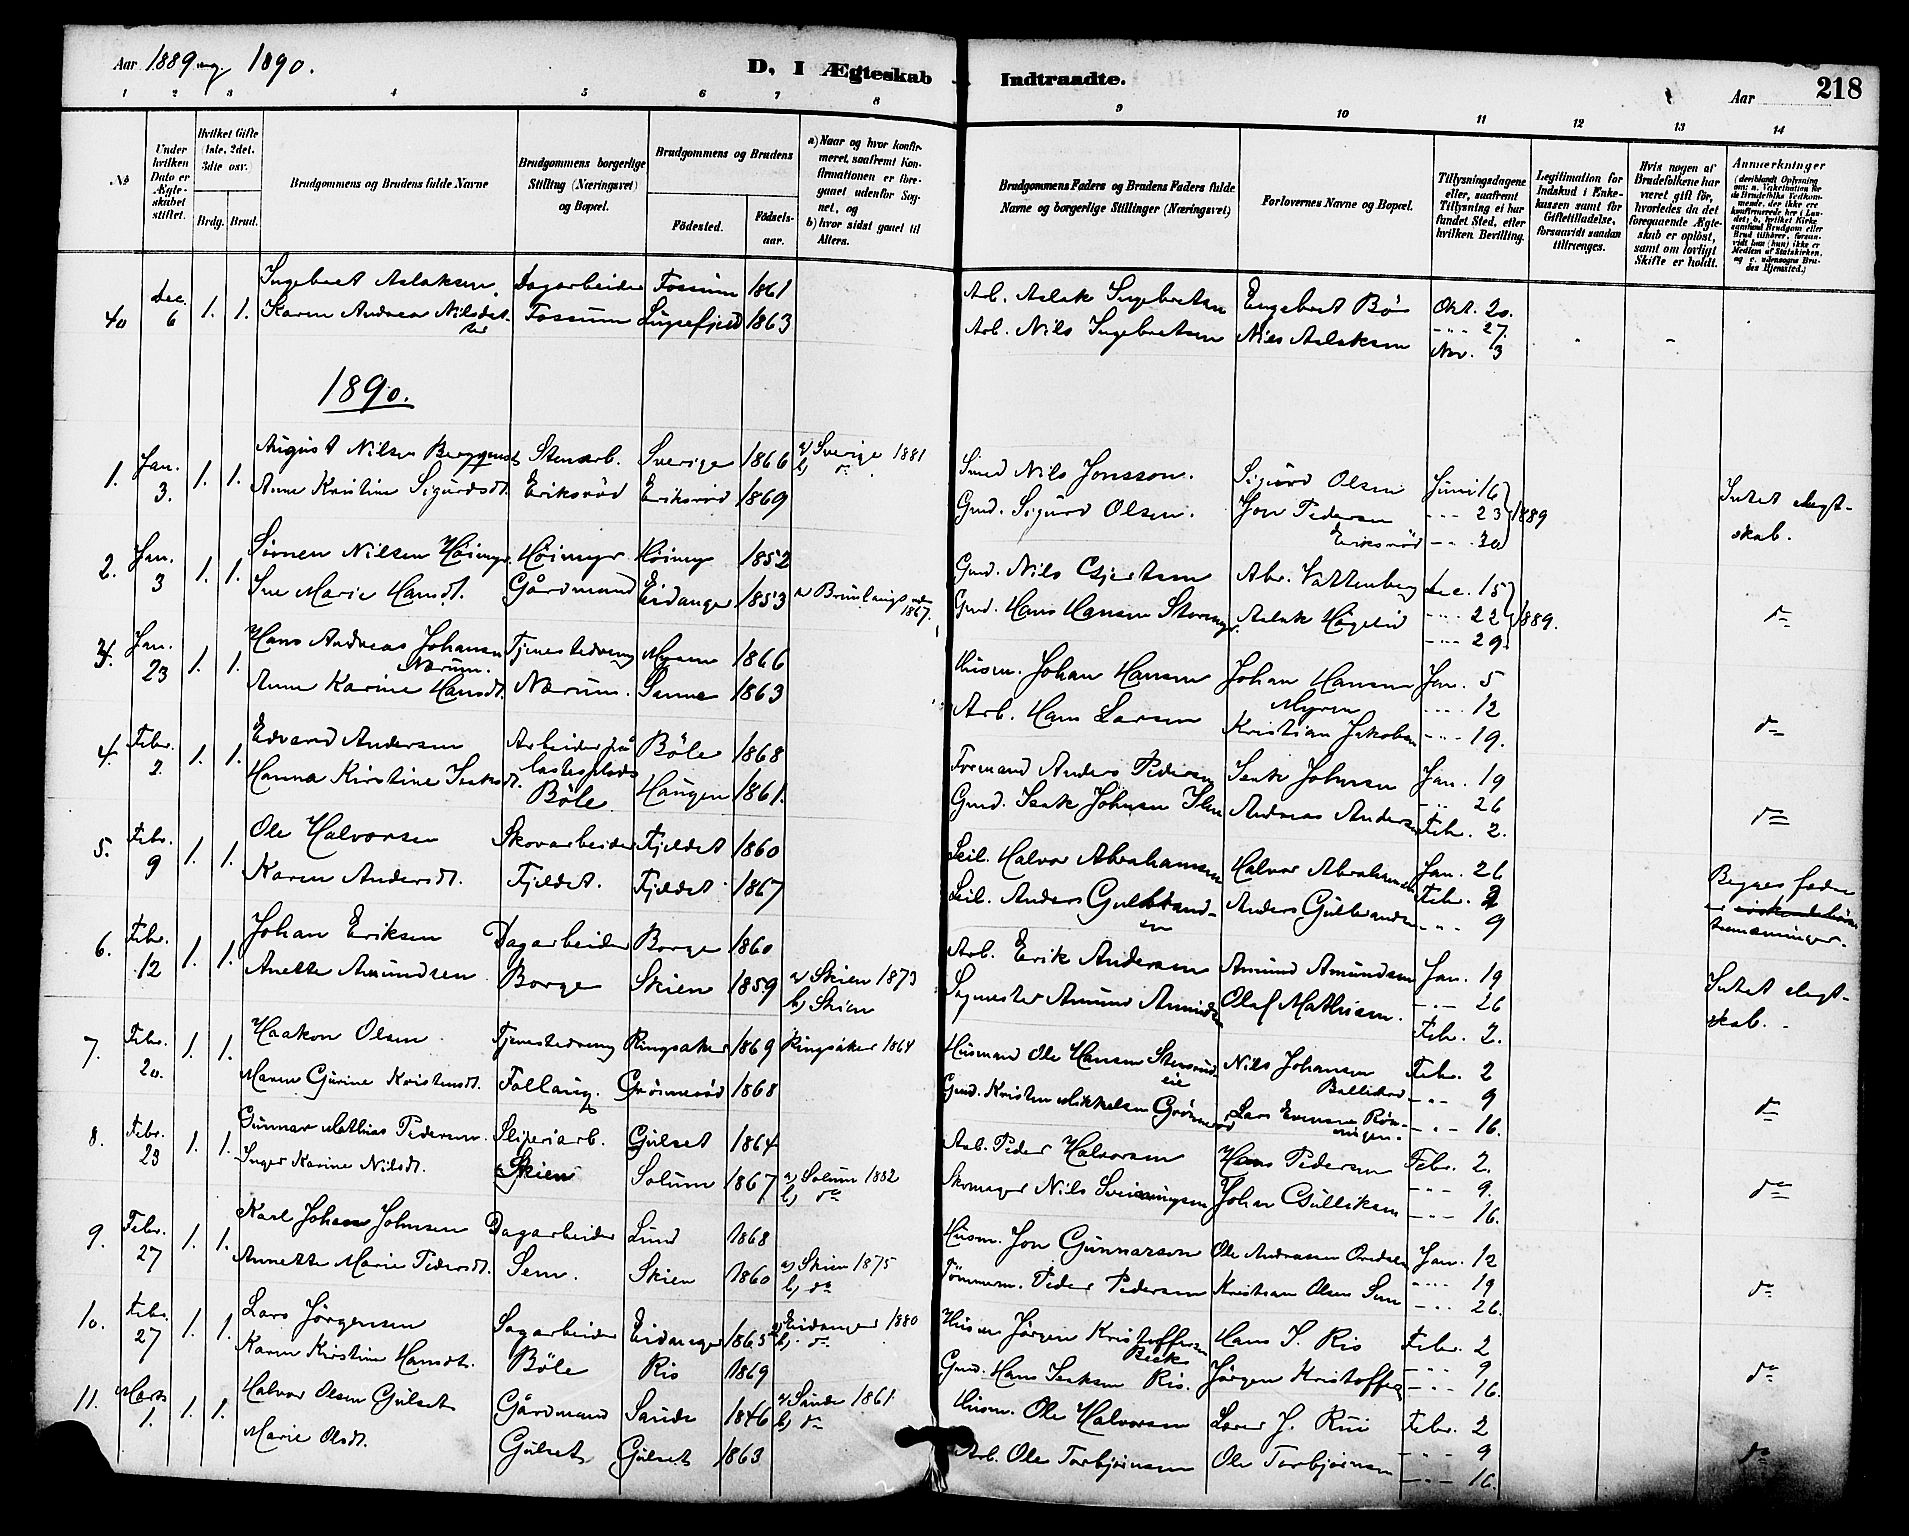 Aar 1889 og 1890.
D. I Ægteskab Indtraadte.
Aar
218
1 2 3 4 5 6 7 8 9 10 11 12 13 14
No
Under hvilken Dato er Ægteskabet stiftet.
Hvilket Gifte (1ste, 2det, 3die osv.
Brdg. Brud.
Brudgommens og Brudens fulde Navne
Brudgommens borgerlige Stilling (Næringsvei) og Bopæl.
Brudgommens og Brudens
Fødested.
Fødsels-aar.
a) Naar og hvor konfirmeret, saafremt Konfirmationen er foregaaet udenfor Sognet, og
b) hvor sidst gaaet til Alters.
Brudgommens Faders og Brudens Faders fulde Navne og borgerlige Stillinger (Næringsvei)
Forlovernes Navne og Bopæl.
Tillysningsdagene eller, saafremt Tillysning ei har fundet Sted, efter hvilken Bevilling.
Legitimation for Indskud i Enkekassen samt for Giftetilladelse, forsaavidt saadan tiltrænges.
Hvis nogen af Brudefolkene har været gift før, hvorledes da det foregaaende Ægteskab er opløst, samt om lovligt Skifte er holdt.
Anmærkninger
40 Dec. 6 1. 1. Ingebret Aslaksen, Dagarbeider Fossum 1861 Arb. Aslak Ingebretsen Engebret Bø Okt. 20.
Karen Andrea Nilsdatter Fossum 1863 Arb. Nils Ingebretsen Nils Aslaksen - 27. Nov. 3
1890.
1. Jan. 3. 1. 1. August Nilsen Stenarb. Sverige 1866 a) Sverige 1881 b) do Smed Nils Jonsson. Sigurd Olsen Juni 16
Anne Kristine Sigurdsdt. Eriksrød Eriksrød 1869 Gmd. Sigurd Olsen. Jon Pedersen Eriksrød - 23 - 30 1889 Intet Slegtskab.
2. Jan. 3 1. 1. Nilsen Høimyr Høimyr Høimyr 1852 Gmd. Nils Gjertsen Abr. Dec. 15
Marie Hansdt. Gårdmand Eidanger 1853 a 1867. Gmd. Hans Hansen Aslak - 22 - 29 1889. do
3. Jan. 23 1. 1. Hans Andreas Johansen Nærum. Tjenestedreng Myren 1866 Husm. Johan Hansen Johan Hansen Myren Jan. 5
Anne Karine Hansdt. Nærum. 1863 Arb. Hans Larsen Kristian Jakobsen - 12 - 19. do
4. Febr. 2. 1. 1. Edvard Andersen Arbeider på Bøle 1868 Formand Anders Pedersen Isak Johnsen Jan. 19
Hanna Kirstine Isaksdt. lastesplads Bøle Haugen 1861. Gmd. Isak Johnsen Andreas Andersen - 26 Febr. 2. do
5. Febr. 9 1. 1. Ole Halvorsen Skovarbeider Fjeldet 1860 Leil. Halvor Abrahamsen Halvor Abrahamsen Jan. 26
Karen Andersdt. Fjeldet. Fjeldet 1867 Leil. Anders Gulbrandsen Anders Gulbrandsen Febr. 2 - 9
6. Febr. 12 1. 1. Johan Eriksen Dagarbeider Borge 1860 Arb. Erik Andersen Amund Amundsen Jan. 19
Anette Amundsen Borge Skien 1859 a) Skien 1873 b) Skien Amund Amundsen Olaf Mathisen. - 26 Febr. 2. Intet Slegtskab.
7. Febr. 20. 1. 1. Haakon Olsen Tjenestedreng Ringsaker 1869 Ringsaker 1864 Husmand Ole Hansen Nils Johansen Febr. 2
Maren Gurine Kristensdt. Follaug. Grønnerød 1868 Gmd. Kristen Mikkelsen Lars Evensen - 9 - 16. do
8. Febr. 23 1. 1. Gunnar Mathias Pedersen. Sliperiarb. Gulset 1864 Arb. Peder Halvorsen Hans Pedersen Febr. 2.
Inger Karine Nilsdt. Skien Solum 1867 a) Solum 1882 b) do Skomager Nils Johan Gulliksen - 9. - 16. do
9. Febr. 27 1. 1. Karl Johan Johnsen Dagarbeider Lund 1868 Husm. Jon Gunnarson Ole Andreassen Jan. 12
Annette Marie Pedersdt. Sem. Skien 1860 a) Skien 1875 b) do Tømmerm. Peder Pedersen Kristian Olsen Sem - 19 - 26. do
10. Febr. 27 1. 1. Lars Jørgensen Dagarbeider Eidanger 1865 a) Eidanger 1880 b) do Husm Jørgen Kristoffersen Hans I. Ris Febr. 2
Karen Kirstine Hansdt. Bøle Ris 1869 Gmd. Hans Isaksen Ris. Jørgen Kristoffers - 9 - 16. do
11. Marts 1. 1. 1. Halvor Olsen Gulset Gårdmand Saude 1846 a) Saude 1861. b) do Husm. Ole Halvorsen J. Rui Febr. 2
Marie Olsdt. Gulset Gulset 1863 Arb. Ole Torbjørnsen Ole Torbjørnsen - 9 - 16. do